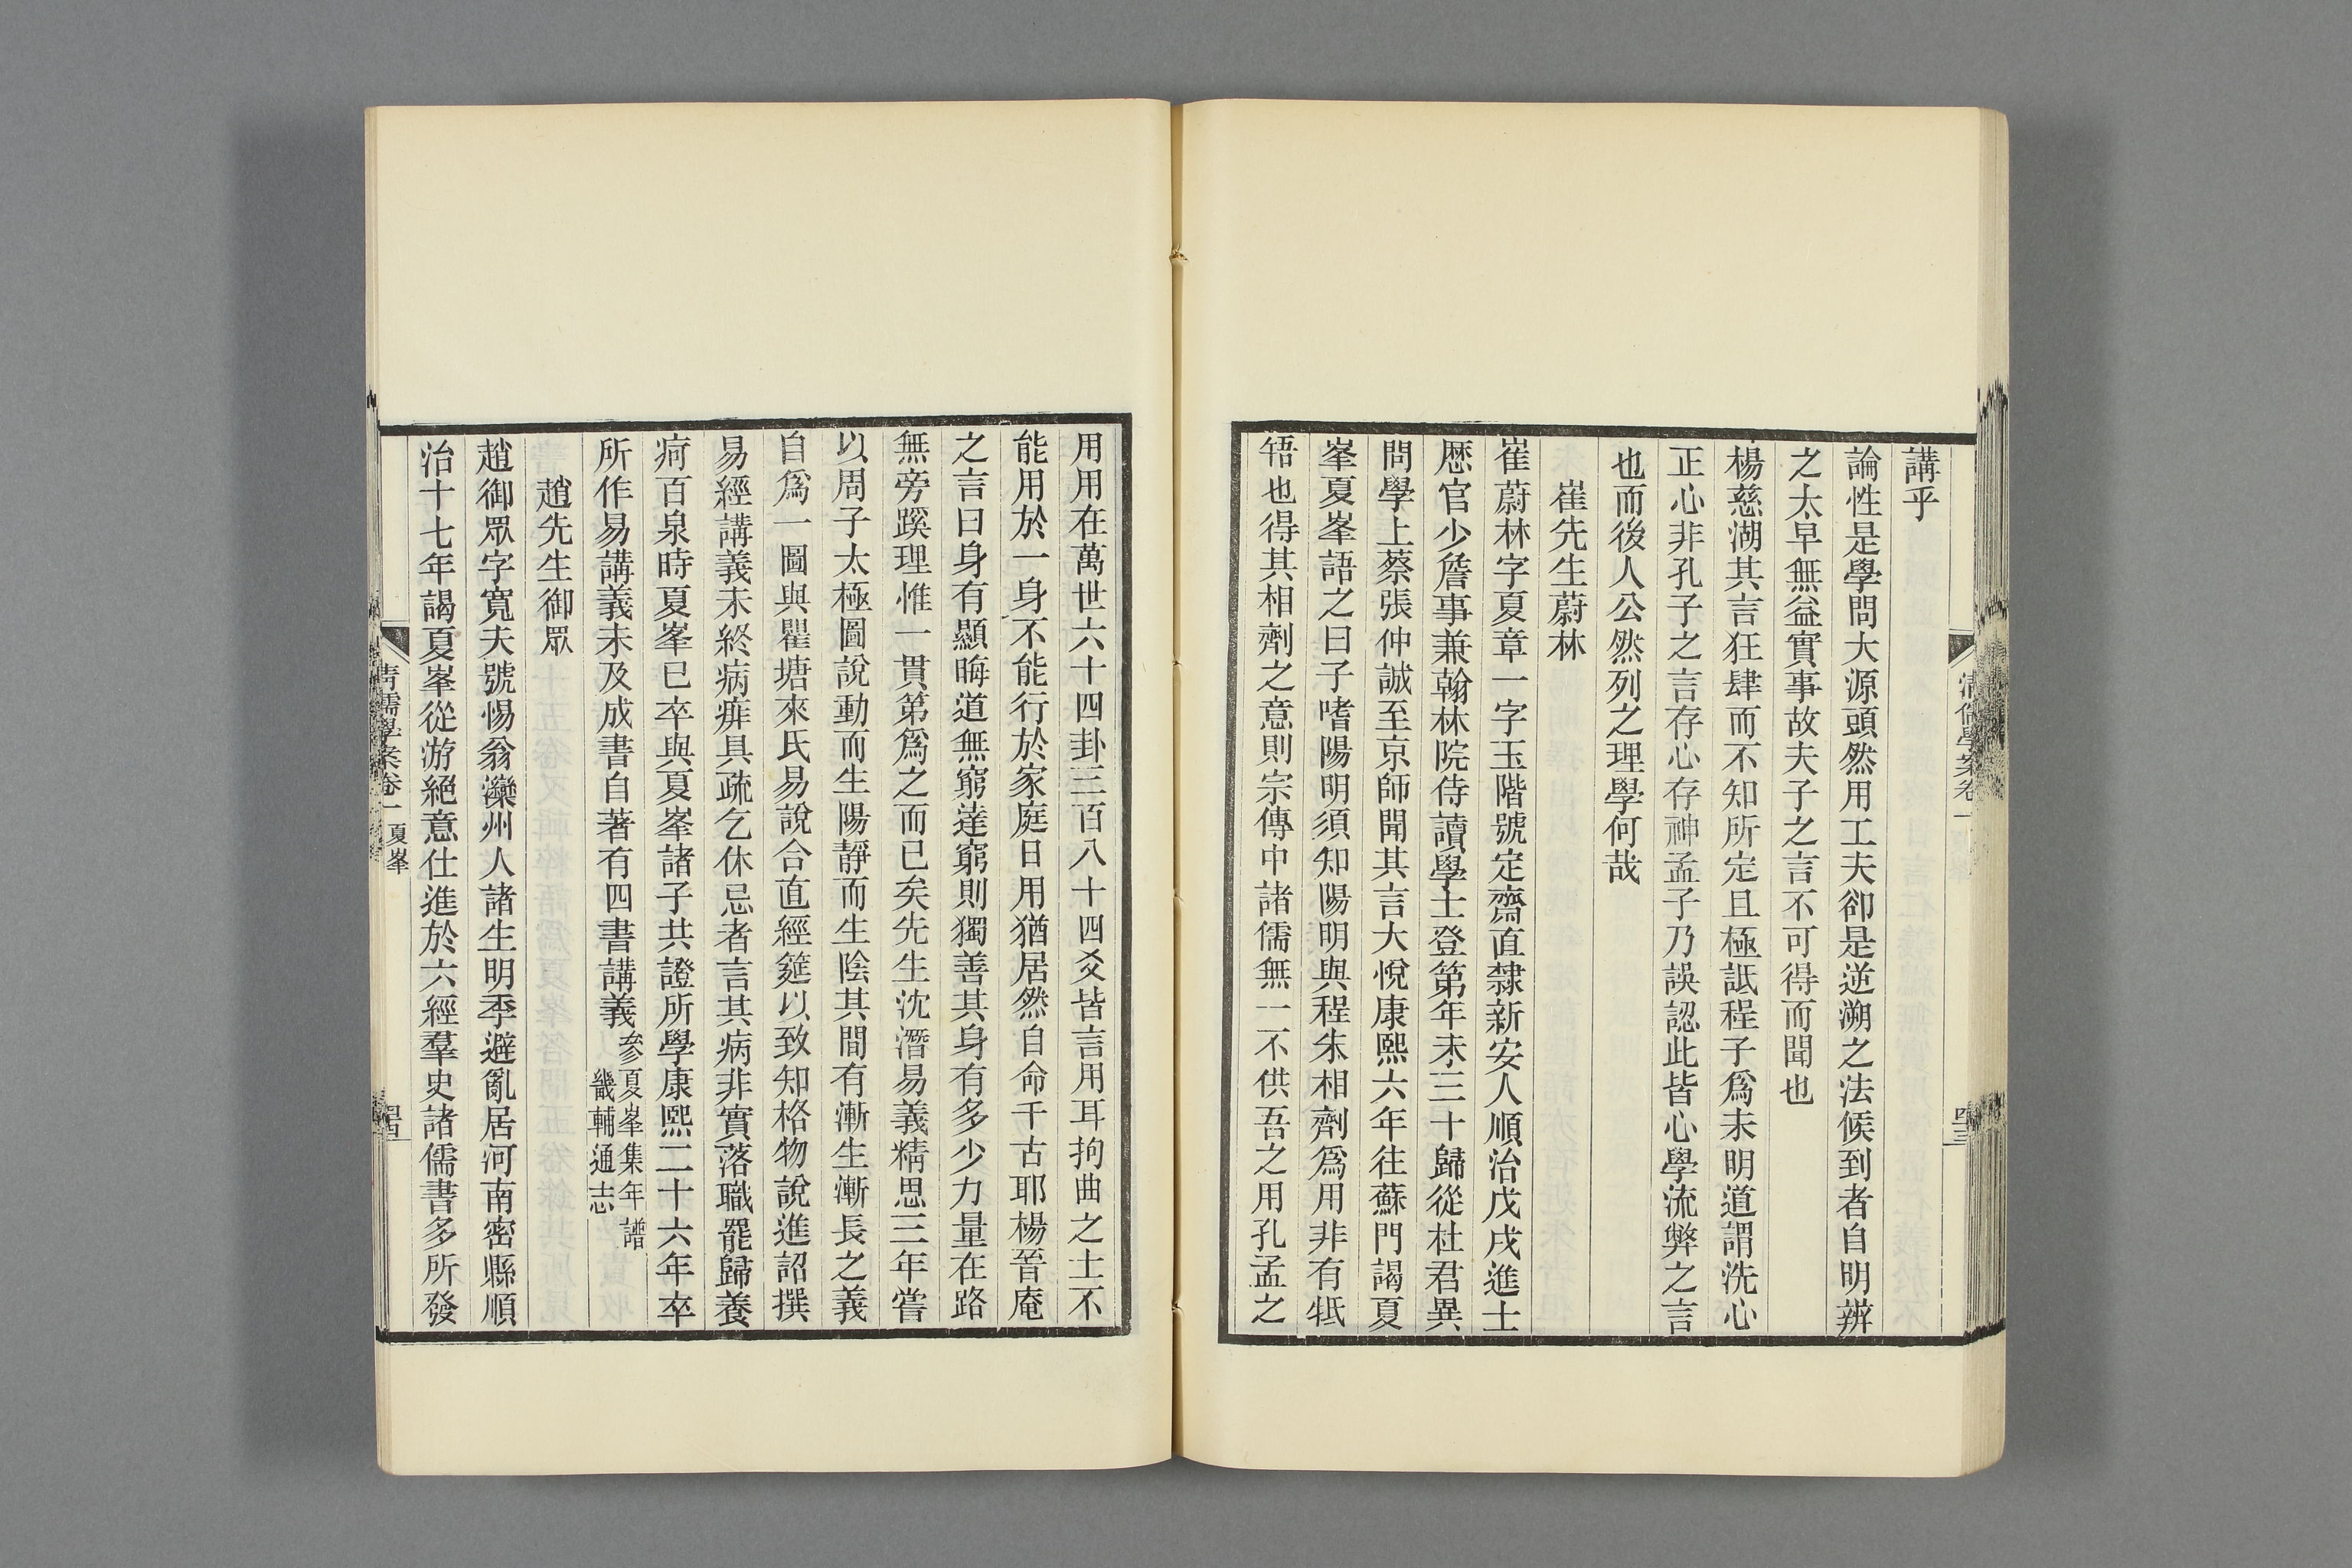 講乎
論性是學問大源頭然用工夫卻是逆溯之法候到者自明辨
之太早無益實事故夫子之言不可得而聞也
楊慈湖其言狂肆而不知所定且極詆程子爲未明道謂洗心
正心非孔子之言存心存神孟子乃誤認此皆心學流弊之言
也而後人公然列之理學何哉
崔先生蔚林
崔蔚林字夏章一字玉階號定齋直隸新安人順治戊戌進士
歷官少詹事兼翰林院侍讀學士登第年未三十歸從杜君異
問學上蔡張仲誠至京師聞其言大悅康熙六年往蘇門謁夏
峯夏峯語之曰子嗜陽明須知陽明與程朱相劑爲用非有牴
牾也得其相劑之意則宗傳中諸儒無一不供吾之用孔孟之
清儒學案卷一
四三
用用在萬世六十四卦三百八十四爻皆言用耳拘曲之士不
能用於一身不能行於家庭日用猶居然自命千古耶楊晉庵
之言曰身有顯晦道無窮達窮則獨善其身有多少力量在路
無旁蹊理惟一貫第爲之而已矣先生沈潛易義精思三年嘗
以周子太極圖說動而生陽靜而生陰其間有漸生漸長之義
自爲一圖與瞿塘來氏易說合直經筵以致知格物說進詔撰
易經講義未終病痺具疏乞休忌者言其病非實落職罷歸養
疴百泉時夏峯已卒與夏峯諸子共證所學康熙二十六年卒
所作易講義未及成書自著有四書講義參夏峯集年譜
畿輔通志
趙先生御眾
趙御眾字寬夫號惕翁灤州人諸生明季避亂居河南密縣順
治十七年謁夏峯從游絕意仕進於六經羣史諸儒書多所發
清儒學案卷一 夏峯
四四